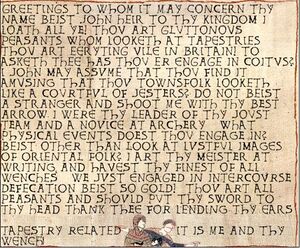 GREETINGS TO WHOM IT MAY CONCERN THY
NAME BEIST JOHN HEIR TO THY KINGDOM I
LOATH ALL YE! THOU ART GLUTTONOUS
PEASANTS WHOM LOOKETH AT TAPESTRIES
THOU ART EVERYTING VILE IN BRITAIN! TO
ASKETH THEE HAS THOU ER ENGAGE IN COITUS?
I JOHN MAY ASSUME THAT THOU FIND IT
AMUSING THAT THOU TOWNSFOLK LOOKETH
LIKE A COURTFUL OF JESTERS? DO NOT BEIST
A STRANGER AND SHOOT ME WITH THY BEST
ARROW I WERE THY LEADER OF THY JOUST
TEAM AND A NOVICE AT ARCHERY WHAT
PHYSICAL EVENTS DOEST THOU ENGAGE IN?
BEIST OTHER THAN LOOK AT LUSTFUL IMAGES
OF ORIENTAL FOLK? I ART THY MEISTER AT
WRITING AND HAVEST THY FINEST OF ALL
WENCHES WE JUST ENGAGED IN INTERCOURSE
DEFECATION BEIST SO GOLD! THOU ART ALL
PEASANTS AND SHOULD PUT THY SWORD TO
THY HEAD THANK THEE FOR LENDING THY EARS
TAPESTRY RELATED IT IS ME AND THY
WENCH